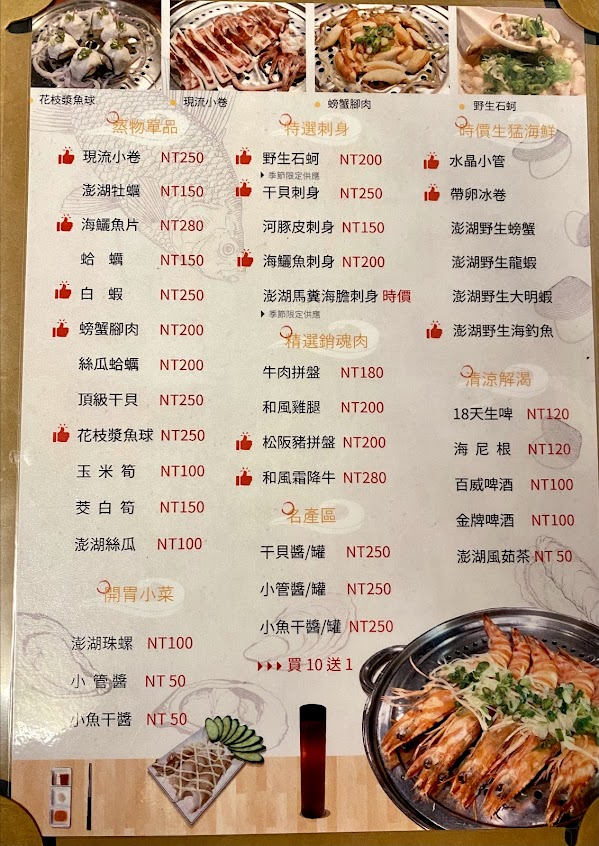 花枝漿魚球
現流小卷
螃蟹腳肉
野生石蚵
蒸物單品
現流小卷 NT250
澎湖牡蠣 NT150
海鱺魚片 NT280
蛤 蠣 NT150
白 蝦 NT250
螃蟹腳肉 NT200
絲瓜蛤蠣 NT200
頂級干貝 NT250
花枝漿魚球 NT250
玉 米 筍 NT100
茭 白 筍 NT150
澎湖絲瓜 NT100
開胃小菜
澎湖珠螺 NT100
小 管 醬 NT 50
小魚干醬 NT 50
特選刺身
野生石蚵 NT200
季節限定供應
干貝刺身 NT250
河豚皮刺身 NT150
海鱺魚刺身 NT200
澎湖馬糞海膽刺身 時價
季節限定供應
精選銷魂肉
牛肉拼盤 NT180
和風雞腿 NT200
松阪豬拼盤 NT200
和風霜降牛 NT280
名產區
干貝醬/罐 NT250
小管醬/罐 NT250
小魚干醬/罐 NT250
買 10 送 1
時價生猛海鮮
水晶小管
帶卵冰卷
澎湖野生螃蟹
澎湖野生龍蝦
澎湖野生大明蝦
澎湖野生海釣魚
清涼解渴
18天生啤 NT120
海 尼 根 NT120
百威啤酒 NT100
金牌啤酒 NT100
澎湖風茹茶 NT 50